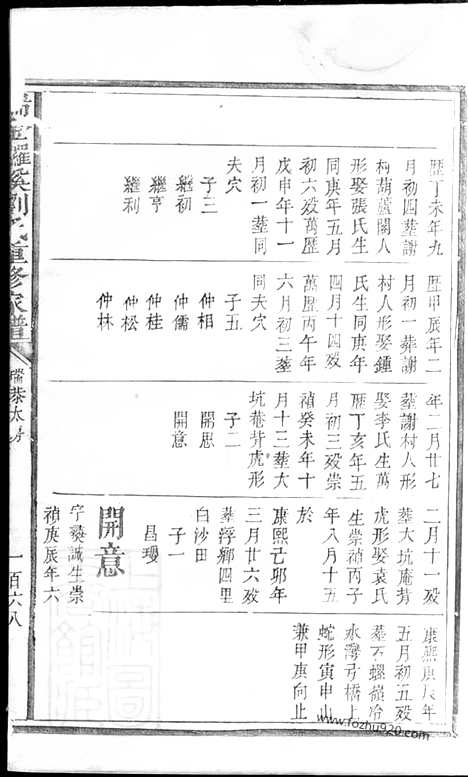 歷丁未年九
月初四葬謝
柄葫蘆關人
形娶張氏生
同庚年五月
初六歿萬歷
戊申年十一
月初一葬同
夫穴
子三
繼初
繼亨
繼利
歷甲辰年二
月初一葬謝
村人形娶鍾
氏生同庚年
四月十四歿
萬歷丙午年
六月初三葬
同夫穴
子五
仲相
仲儒
仲桂
仲松
仲林
年二月廿七
葬謝村人形
娶李氏生萬
歷丁亥年五
月初三歿崇
禎癸未年十
月十三葬大
坑菴背虎形
子二
開思
開意
二月十一歿
葬大坑庵背
虎形娶袁氏
生崇禎丙子
年八月十五
於
康熙己卯年
三月廿六歿
葬浮鄉四里
白沙田
子一
昌璎
開意
字義誠生崇
禎庚辰年六
康熙庚辰年
五月初五歿
葬下螺嶺冶
水灣弓橋上
蛇形寅申山
兼甲庚向止
羅溪劉氏重修家譜
瑞泰太房
一百六八
www.fozhu920.com